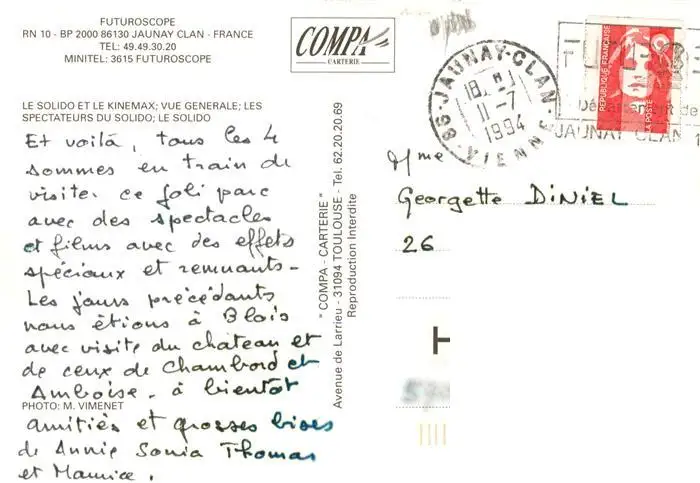 FUTUROSCOPE
RN 10 - BP 2000 86130 JAUNAY CLAN - FRANCE
TEL: 49.49.30.20
MINITEL: 3615 FUTUROSCOPE
COMPA
CARTERIE
LE SOLIDO ET LE KINEMAX; VUE GENERALE; LES
SPECTATEURS DU SOLIDO; LE SOLIDO
Et voilà, tous les 4
sommes en train de
visiter ce joli parc
avec des spectacles
et films avec des effets
spéciaux et remuants -
Les jours précédants
nous étions à Blois
avec visite du chateau et
de ceux de Chambord et
Amboise. à bientôt
PHOTO: M. VIMENET
amitiés et grosses bises
de Annie Sonia Thomas
et Maurice.
" COMPA - CARTERIE "
Avenue de Larrieu - 31094 TOULOUSE - Tel. 62.20.20.69
Reproduction Interdite
86-JAUNAY-CLAN-
18 H
11-7
1994
VIENNE
Département de
JAUNAY CLAN
REPUBLIQUE FRANÇAISE
LA POSTE
Mme
Georgette DINIEL
26